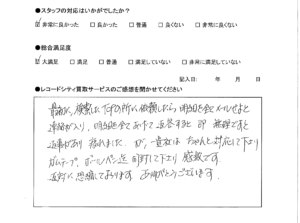 ●スタッフの対応はいかがでしたか？
☑ 非常に良かった □ 良かった □ 普通 □ 良くない □ 非常に良くない
●総合満足度
☑ 大満足 □ 満足 □ 普通 □ 満足していない □ 非常に満足していない
記入日: 年 月 日
●レコードシティ買取サービスのご感想を聞かせてください
最初に、検索した所に依頼したら 明細を全てメールせよと
連絡が入り、明細を全てあげて返答すると 即 無理ですと
返事があり 疲れました が、貴社は ちゃんと対応して下さり
ガムテープ、ボールペン迄 同封して下さり 感激です。
反対に恐縮しております ありがとうございます。